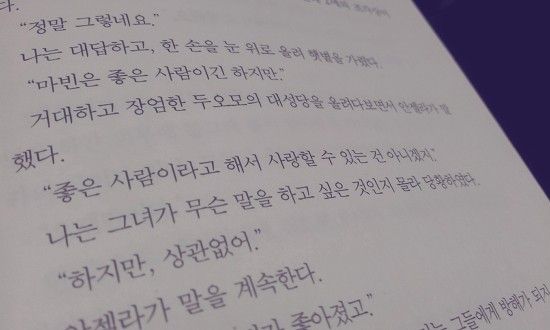 다.
“정말 그렇네요.”
나는 대답하고, 한 손을 눈 위로 올려 햇볕을 가렸다.
“마빈은 좋은 사람이긴 하지만.”
거대하고 장엄한 두오모의 대성당을 올려다보면서 안젤라가 말
했다.
“좋은 사람이라고 해서 사랑할 수 있는 건 아니겠지.”
나는 그녀가 무슨 말을 하고 싶은 것인지 몰라 당황하였다.
“하지만, 상관없어.”
안젤라가 말을 계속한다.
좋아졌고.”
그들에게 방해가 되지